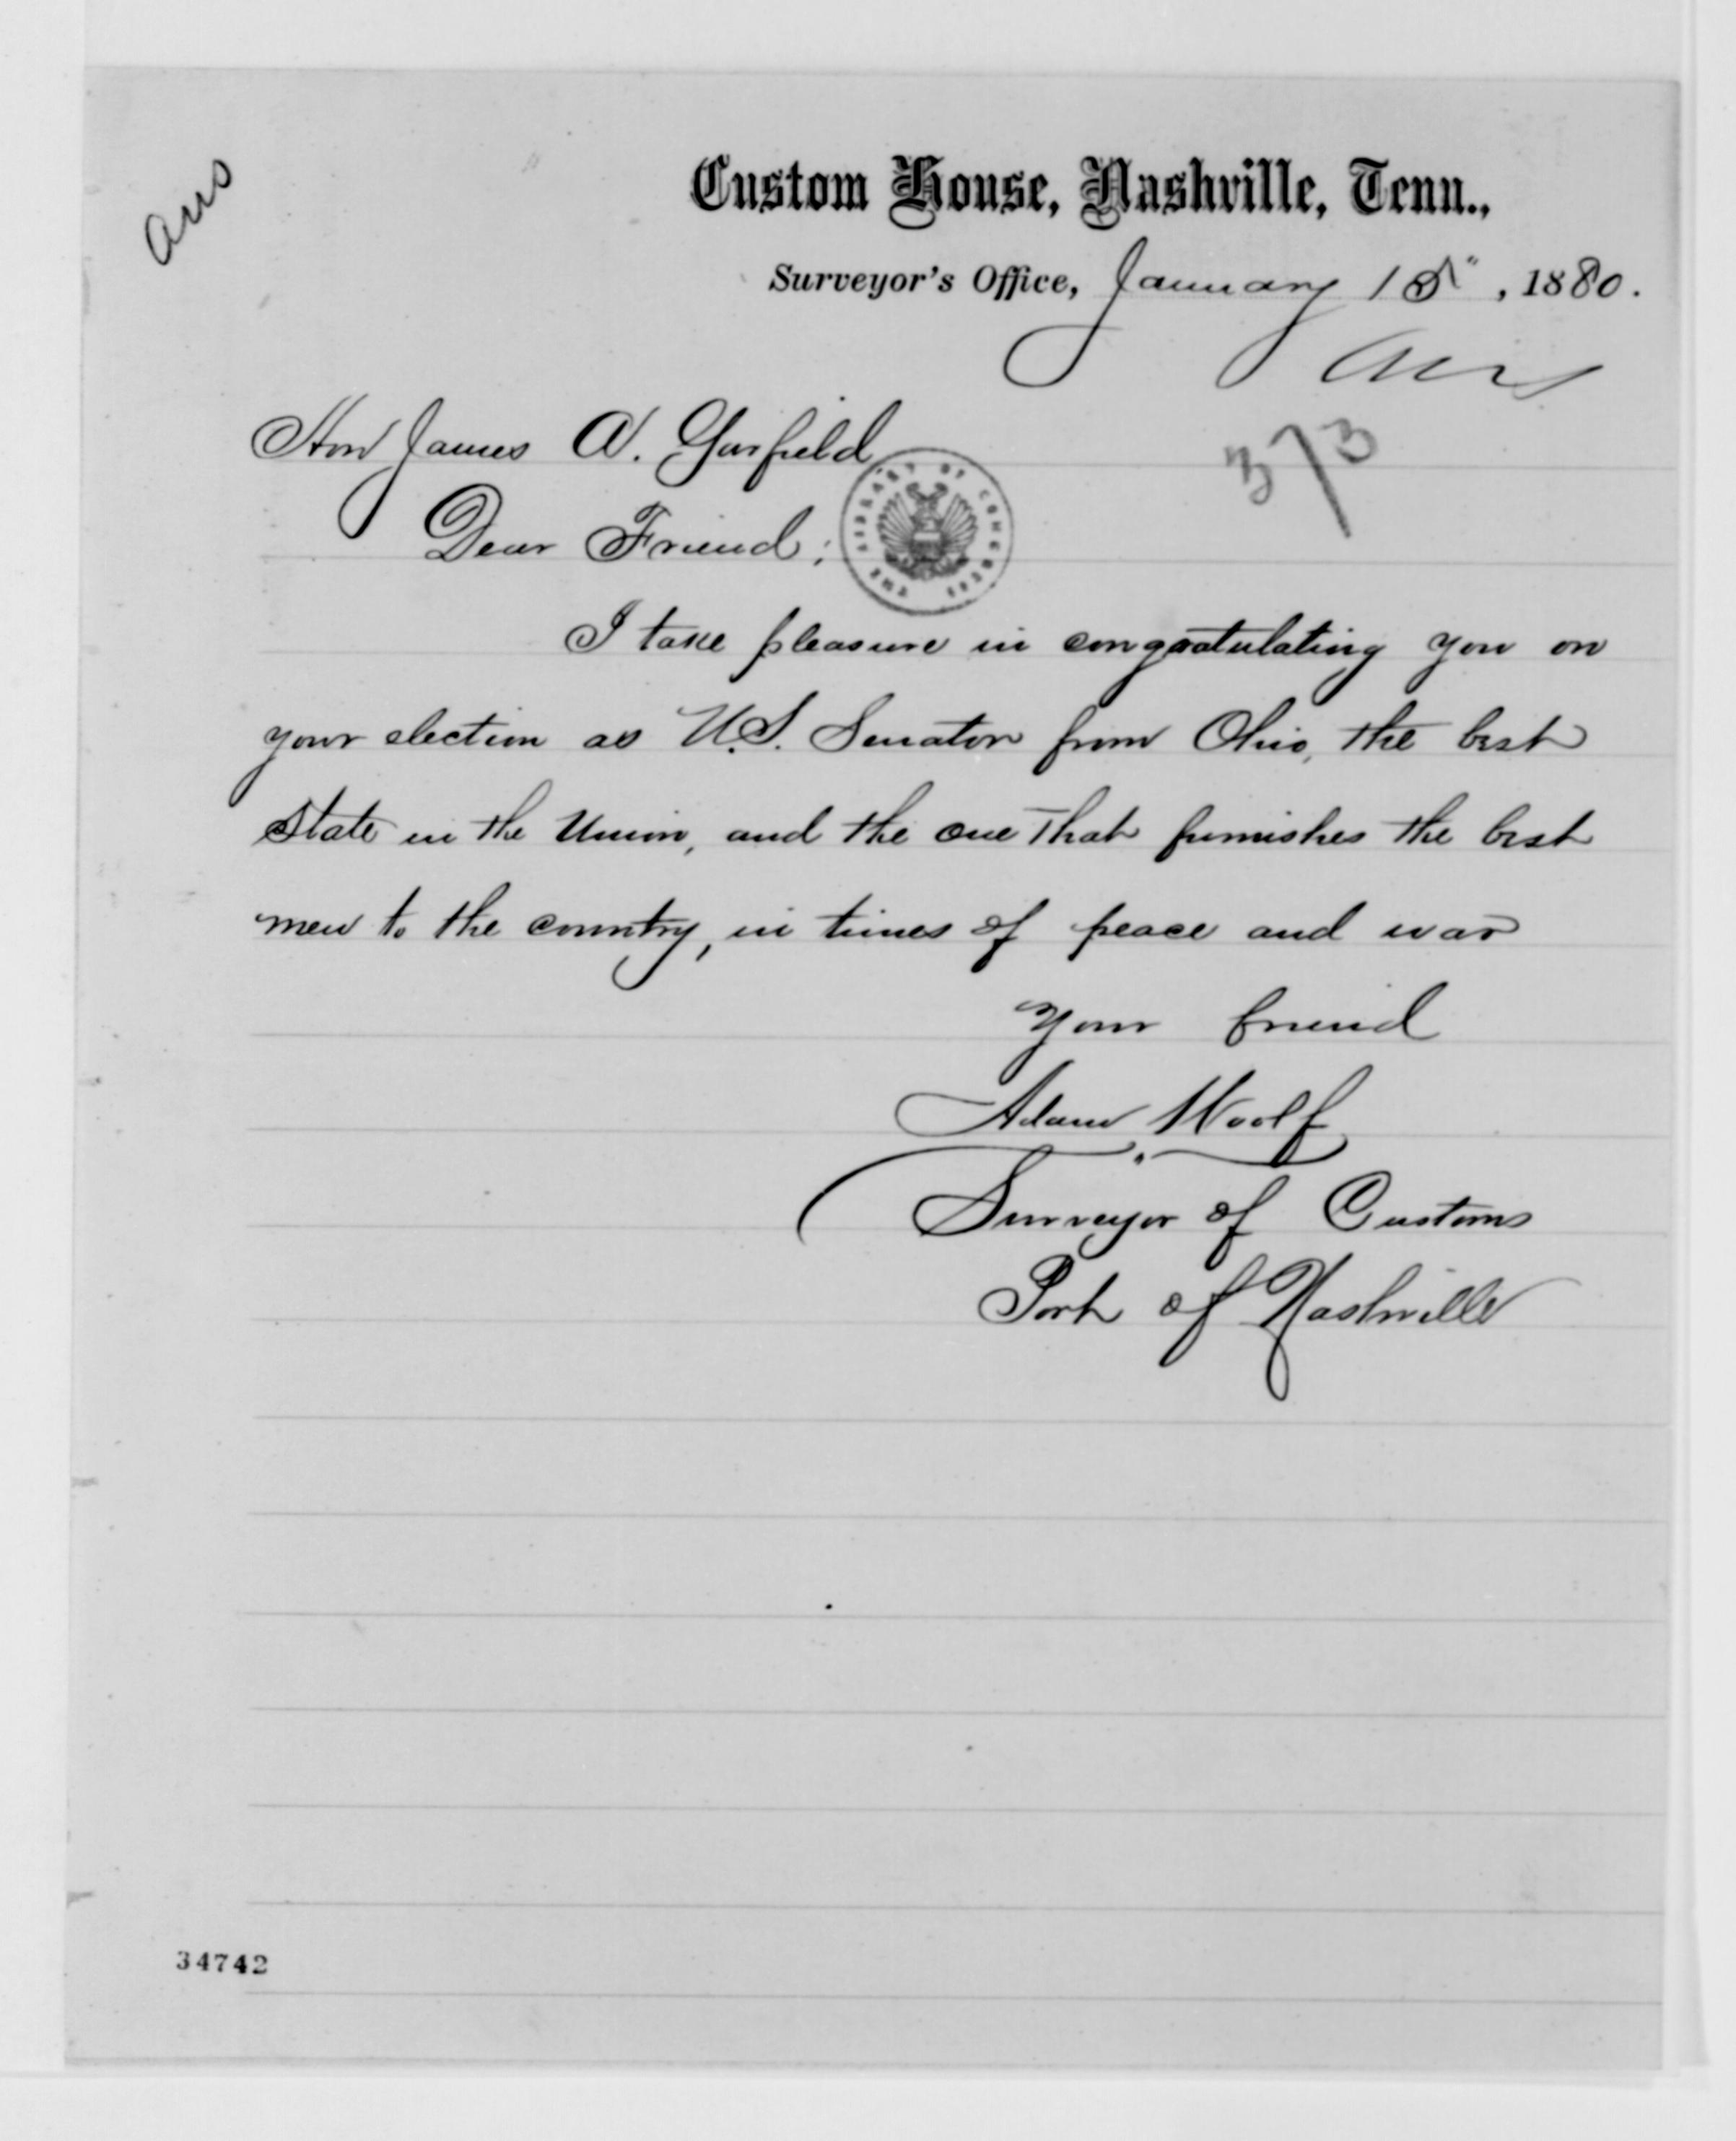 Ans
Custom House, Nashville, Tenn.,
Surveyor's Office, January 15", 1880.
Ans
373
Hon James A. Garfield
Dear Friend;
THE LIBRARY OF CONGRESS
I take pleasure in congratulating you on
your election as U.S. Senator from Ohio, the best
State in the Union, and the one that furnishes the best
men to the country, in times of peace and war
Your friend
Adam Woolf
Surveyor of Customs
Port of Nashville
34742